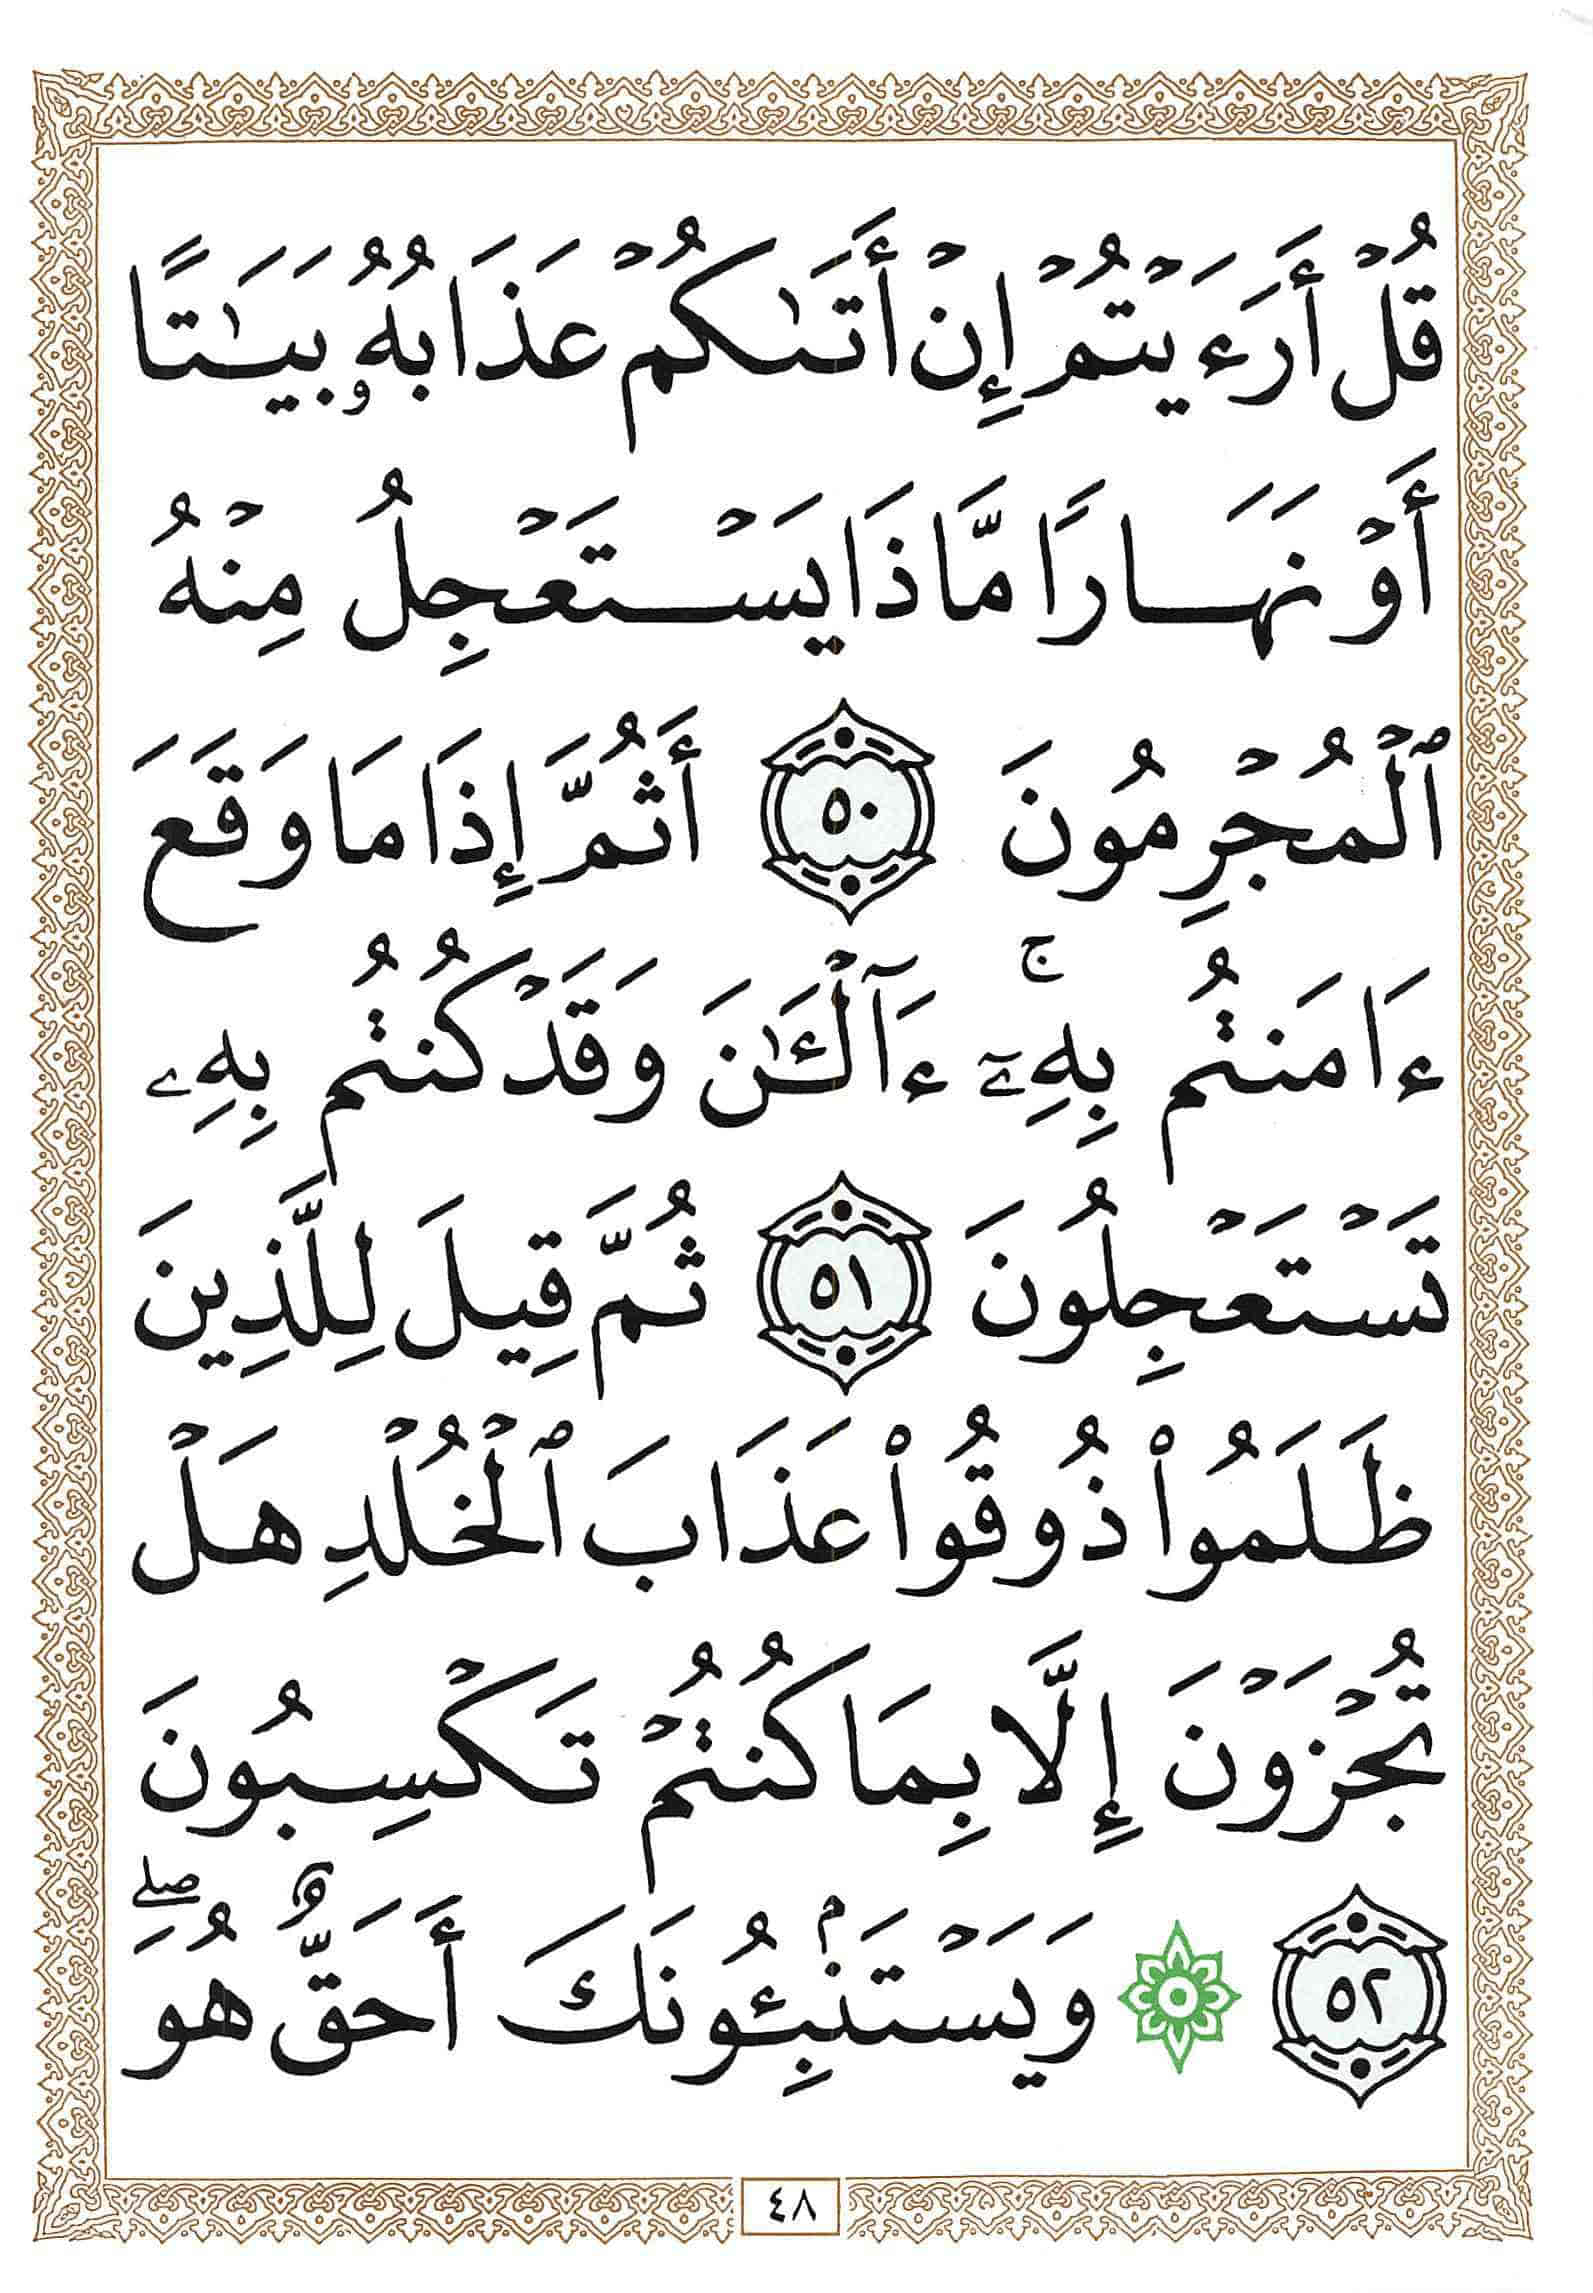 قُلْ أَرَءَيْتُمْ إِنْ أَتَىٰكُمْ عَذَابُهُۥ بَيَـٰتًا
أَوْ نَهَارًا مَّاذَا يَسْتَعْجِلُ مِنْهُ
ٱلْمُجْرِمُونَ ٥٠ أَثُمَّ إِذَا مَا وَقَعَ
ءَامَنتُم بِهِۦٓ ۚ ءَآلْـَٔـٰنَ وَقَدْ كُنتُم بِهِۦ
تَسْتَعْجِلُونَ ٥١ ثُمَّ قِيلَ لِلَّذِينَ
ظَلَمُوا۟ ذُوقُوا۟ عَذَابَ ٱلْخُلْدِ هَلْ
تُجْزَوْنَ إِلَّا بِمَا كُنتُمْ تَكْسِبُونَ
٥٢ ۞ وَيَسْتَنۢبِـُٔونَكَ أَحَقٌّ هُوَ ۖ
٤٨